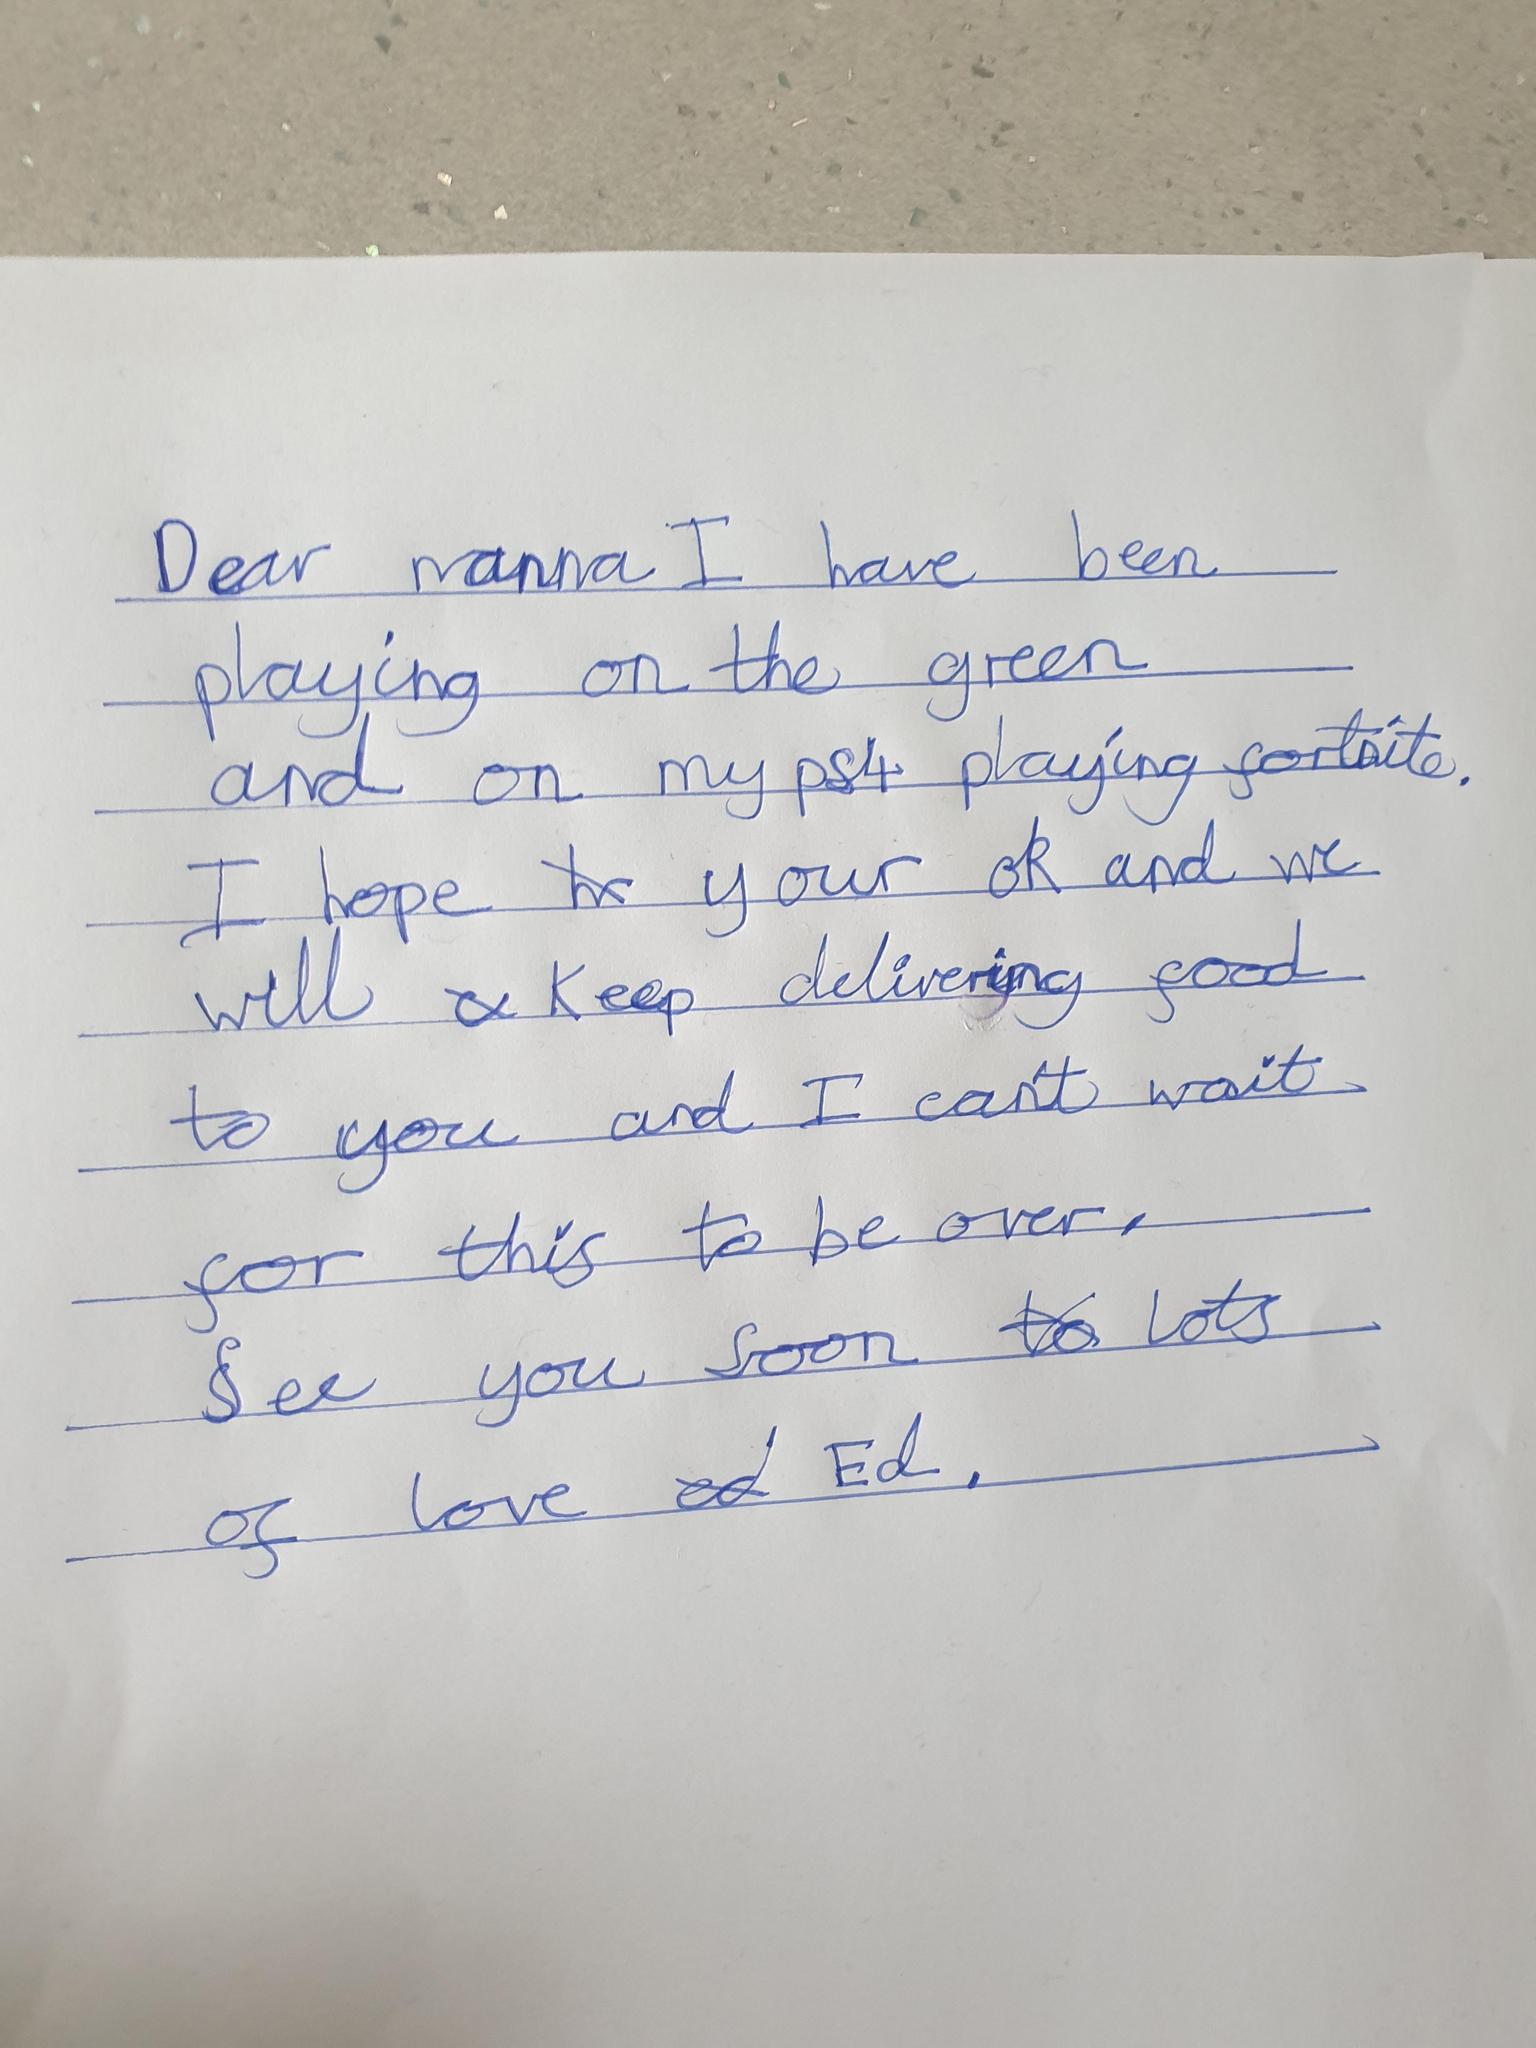 Dear nanna I have been
playing on the green
and on my ps4 playing fortnite.
I hope your ok and we
will keep delivering food
to you and I can't wait
for this to be over.
See you soon lots
of love Ed.